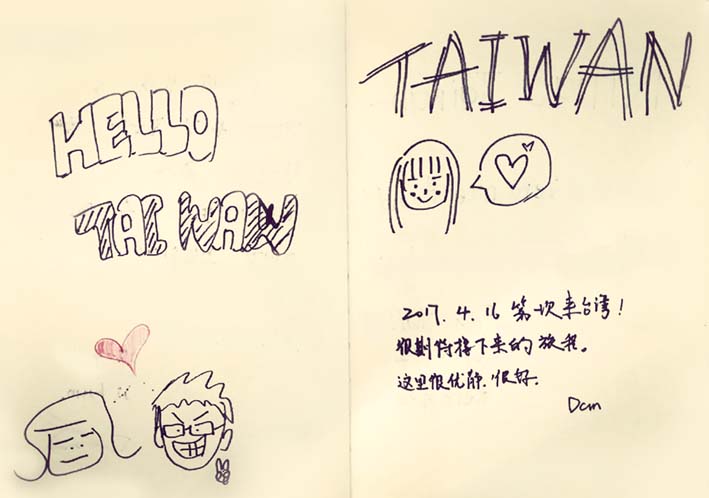 HELLO
TAIWAN
TAIWAN
2017.4.16 第一次来台湾!
很期待接下来的旅程。
这里很优静.很好.
Dcm